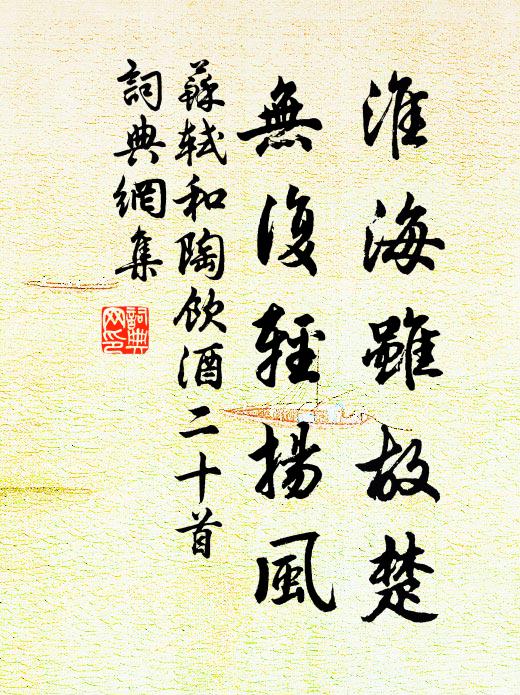 淮海雖故楚
無復輕揚風
蘇軾和陶飲酒二十首
詞典網集
詞典網印